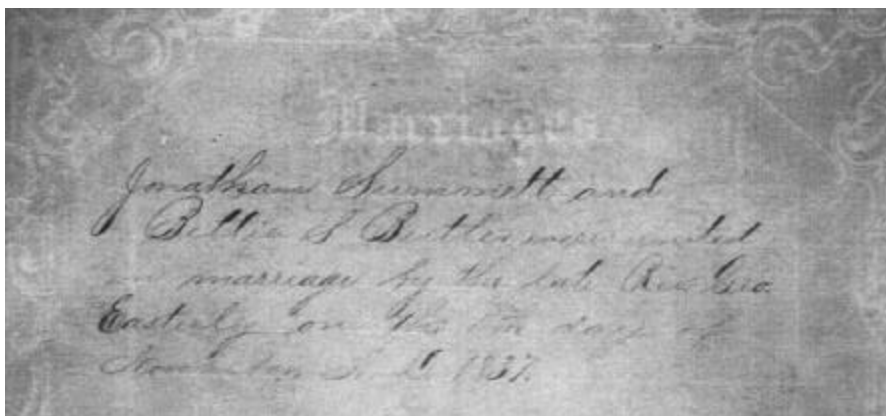 Marriages
Jonathan Summett and
Bettie S Butler were united
in marriage by the late Rev Geo
Easterly on the day of
November A. D. 1837.